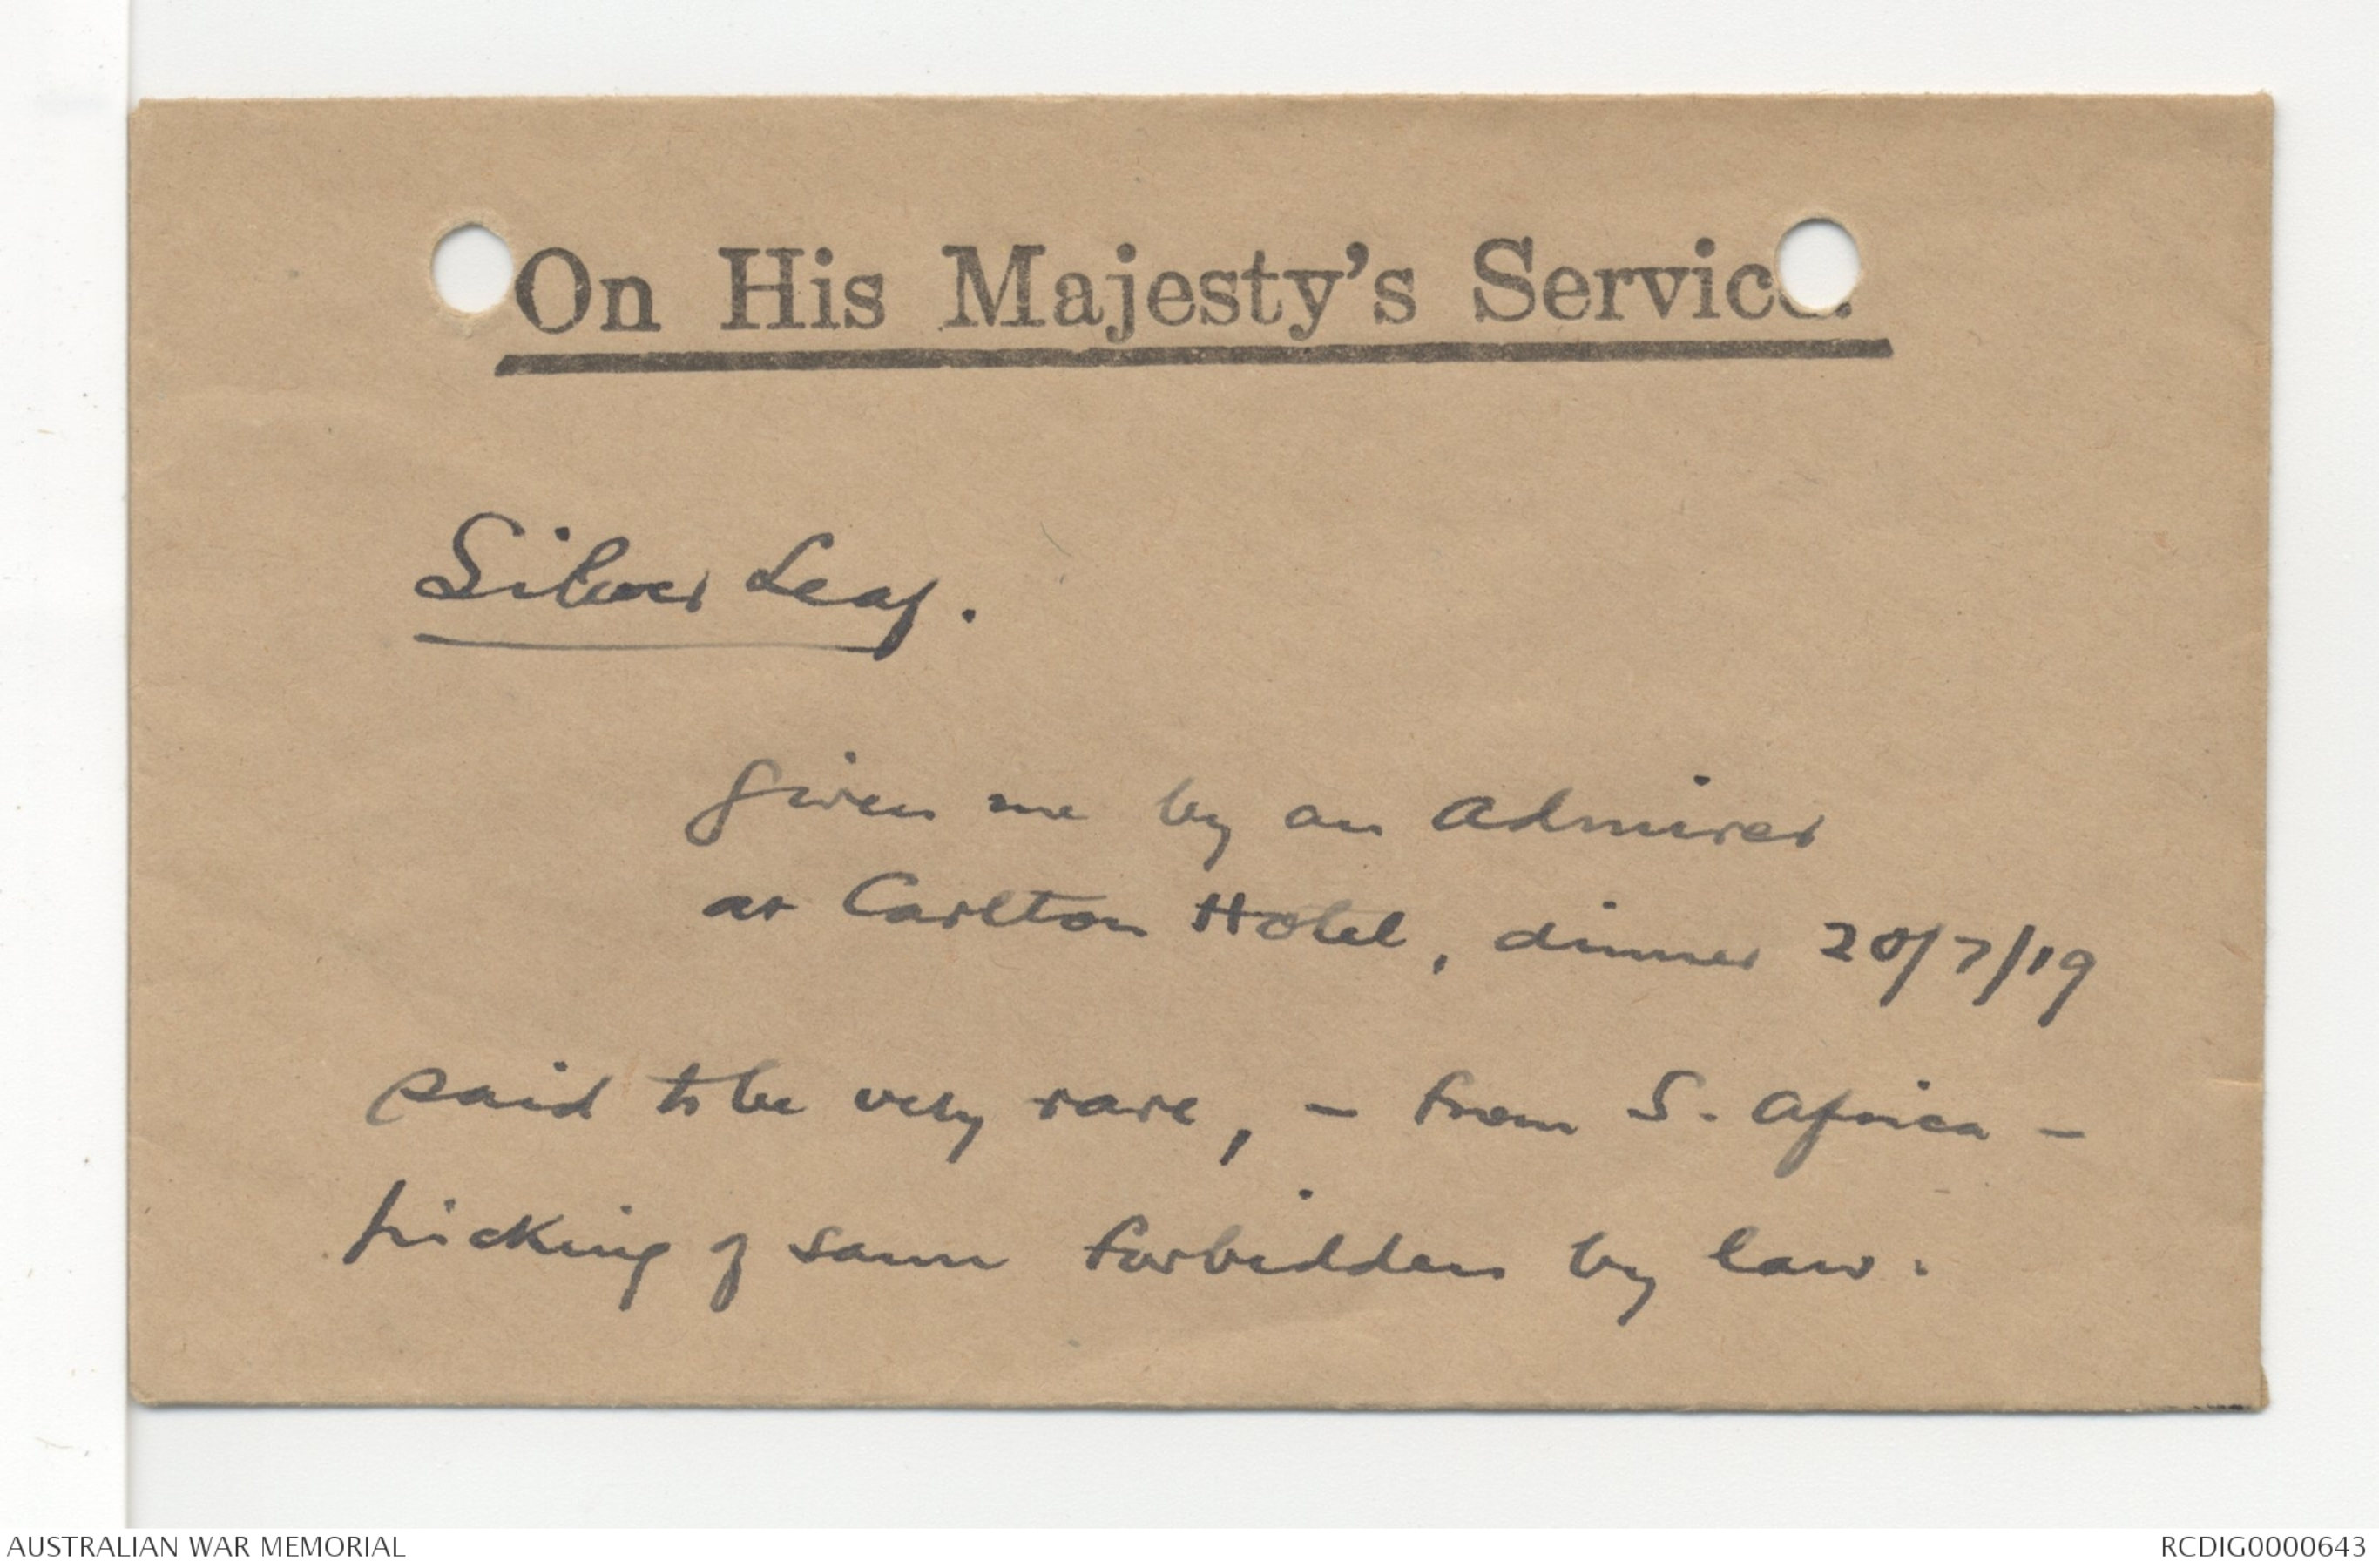 On His Majesty's Service.
Silver Leaf.
Given me by an Admirer
at Carlton Hotel, dinner 20/7/19
said to be very rare, - from S. Africa -
picking of same forbidden by law.
AUSTRALIAN WAR MEMORIAL
RCDIG0000643